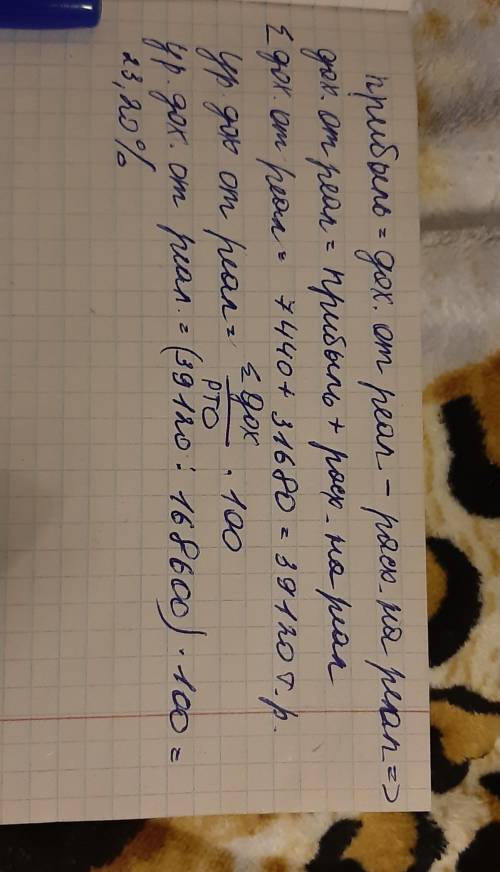 прибыль = дох. от реал - расх. на реал =>
дох. от реал = прибыль + расх. на реал
Σ дох. от реал = 7440 + 31680 = 39120 т.р.
ур. дох от реал = Σ дох / РТО · 100
ур. дох. от реал. = (39120 : 168600) · 100 =
23,20%